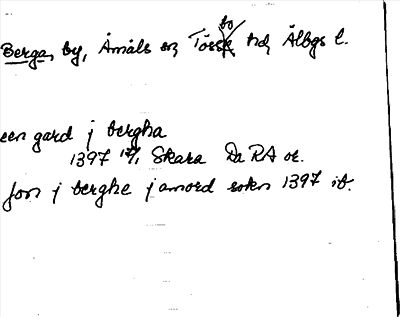 Berga, by, Åmåls sn, Tössbo hd, Älbgs l.
een gard j bergha
1397 17/1 Skara Da RA or.
Jon j berghe j amord sokn 1397 ib.